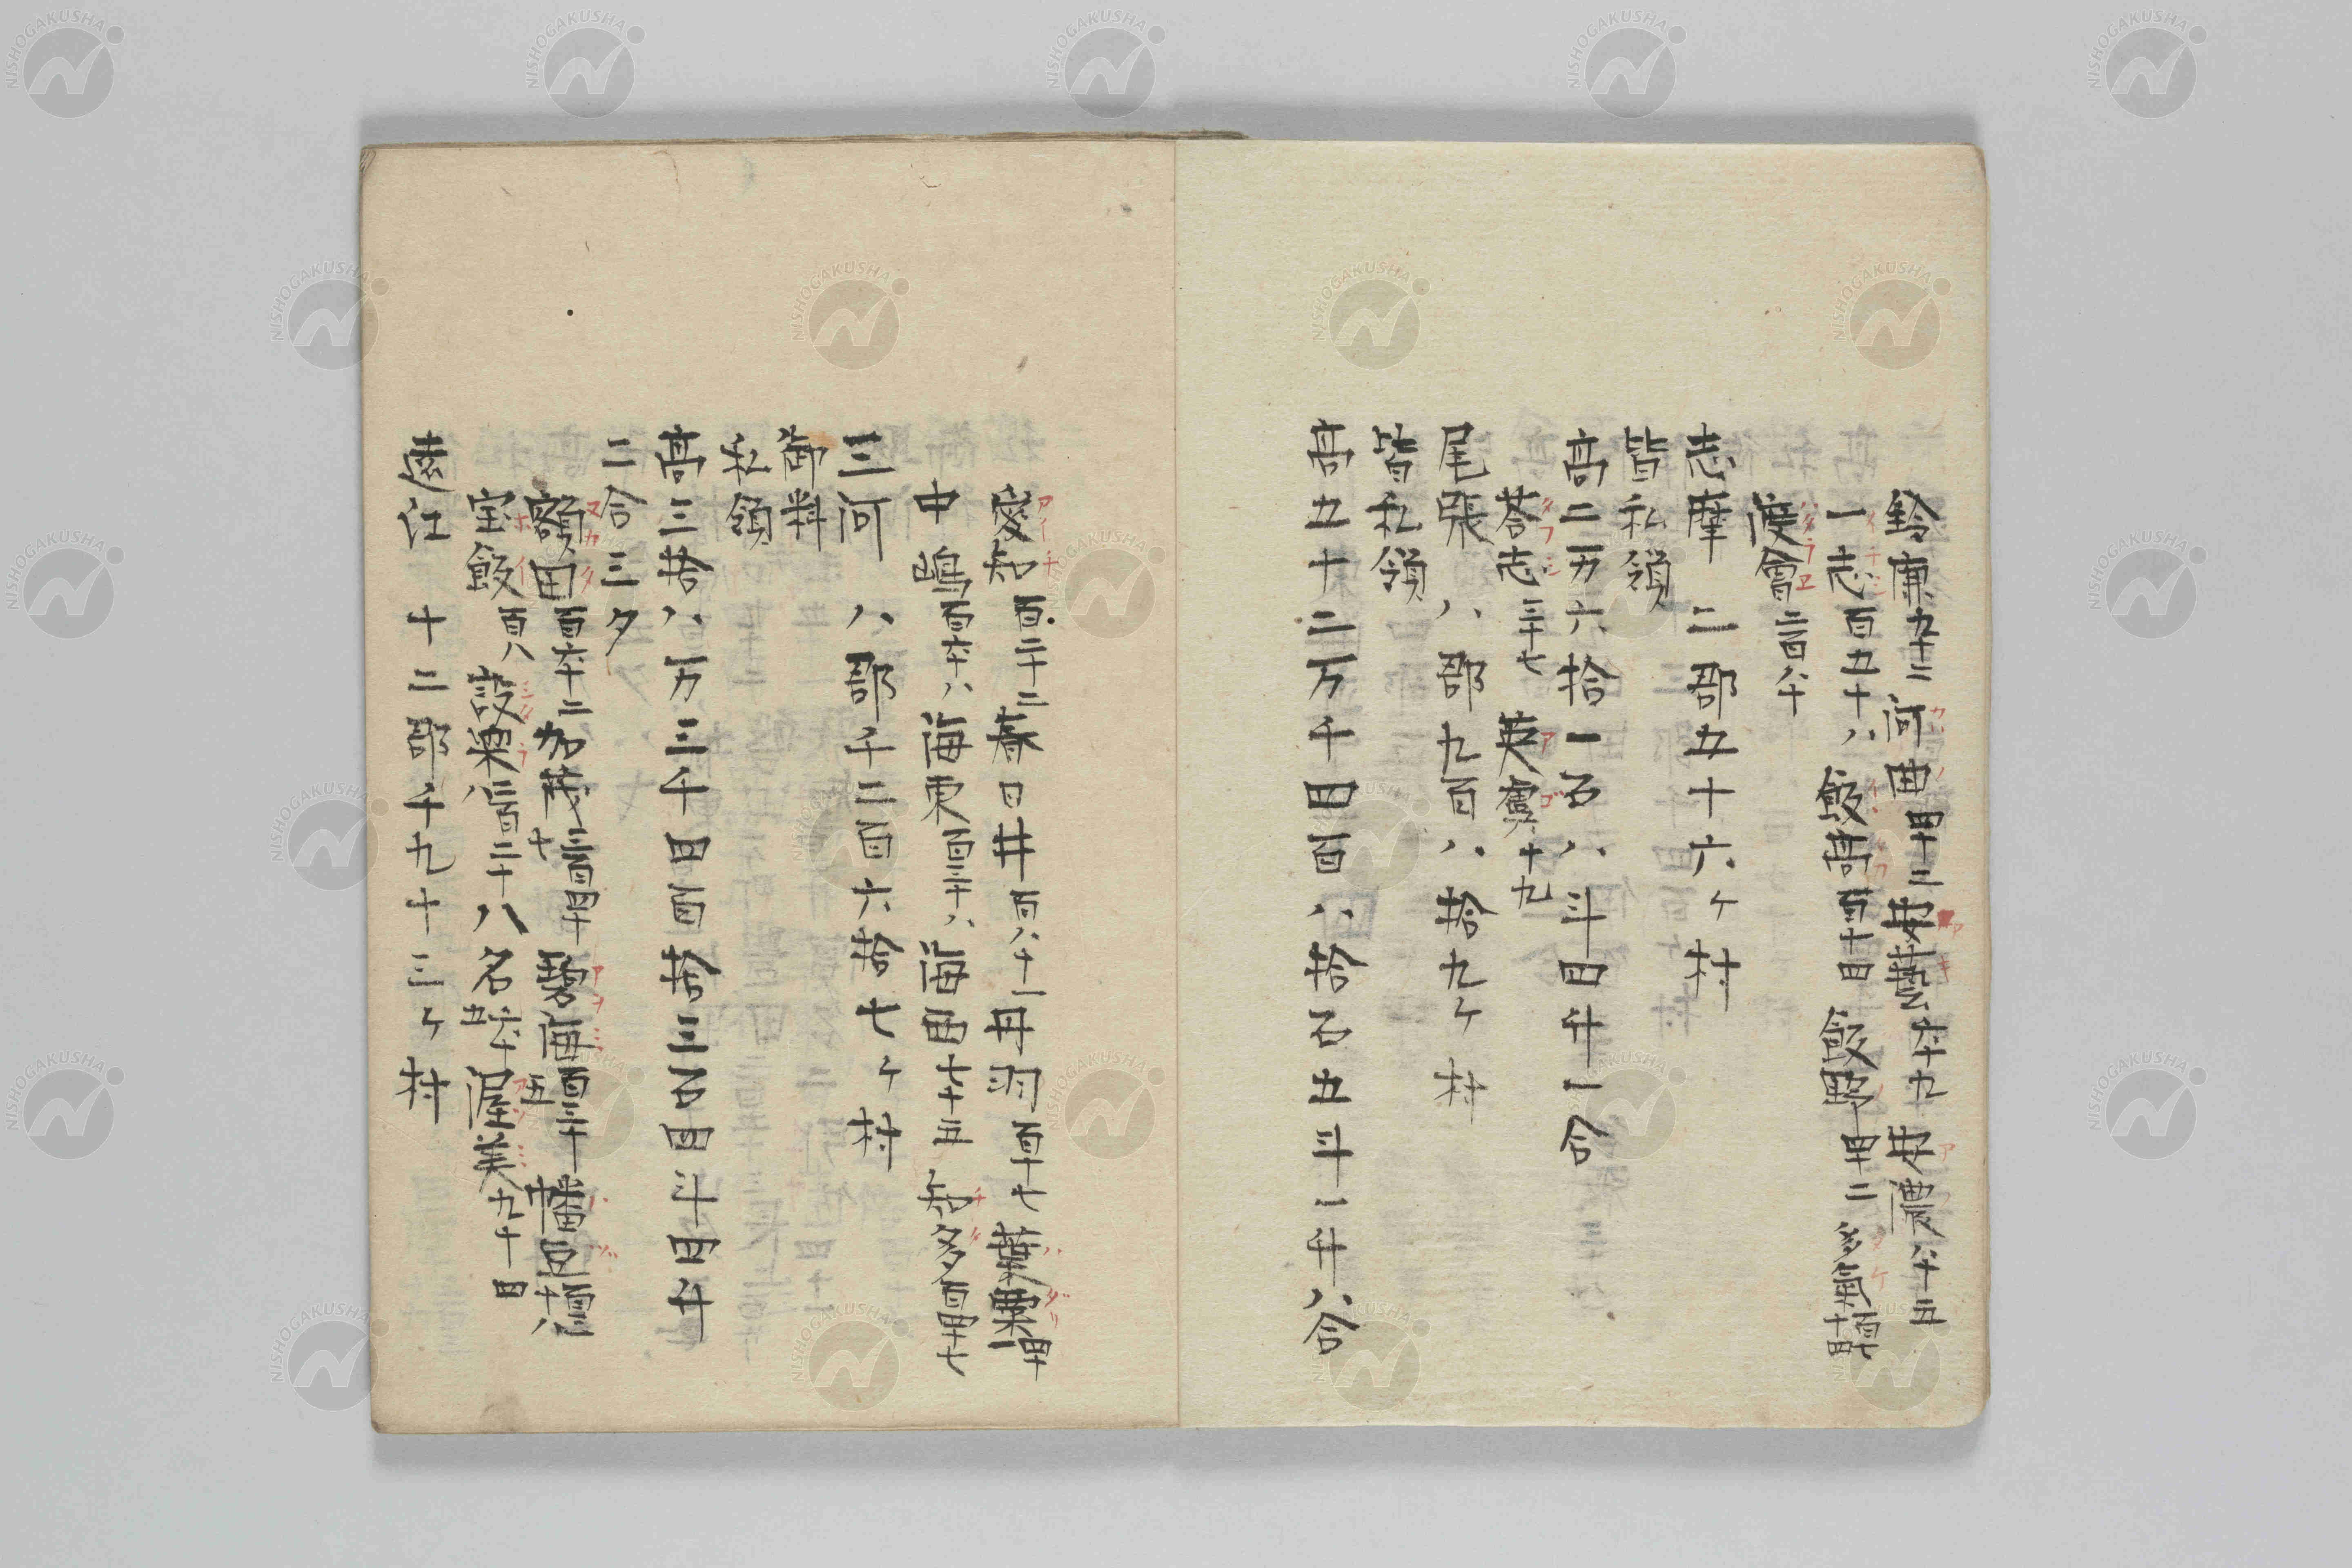 鈴鹿九十二 河曲四十二 安藝六十九 安濃八十五
一志百五十八 飯高百十四 飯野四十二 多氣百七十四
渡會二百八十
志摩 二郡五十六ケ村
皆私領
高二万六拾一石八斗四升一合
荅志三十七 英虞十九
尾張 八郡九百八拾九ケ村
皆私領
高五十二万千四百八拾石五斗一升八合
愛知百二十二 春日井百八十一 丹羽百十七 葉栗四十一
中嶋百六十八 海東百三十八 海西七十五 知多百四十七
三河 八郡千二百六拾七ケ村
御料
私領
高三拾八万三千四百拾三石四斗四升
二合三夕
額田百六十二 加茂三百四十七 碧海百三十五 幡豆百三十八
宝飯百八 設樂二百二十八 八名六十五 渥美九十四
遠江 十二郡千九十三ケ村